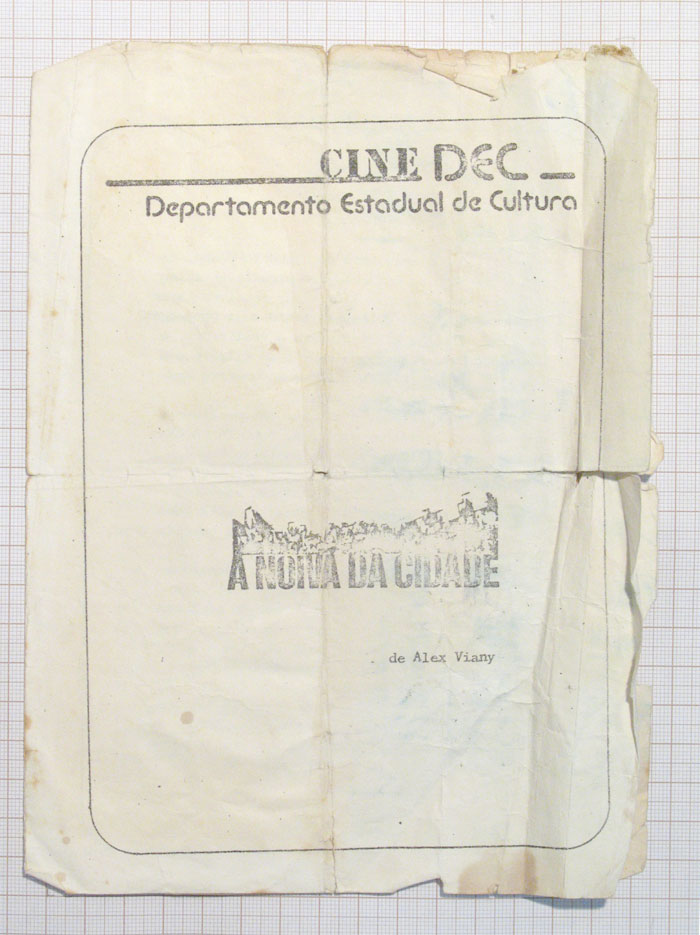 CINE DEC
Departamento Estadual de Cultura
A NOIVA DA CIDADE
de Alex Viany